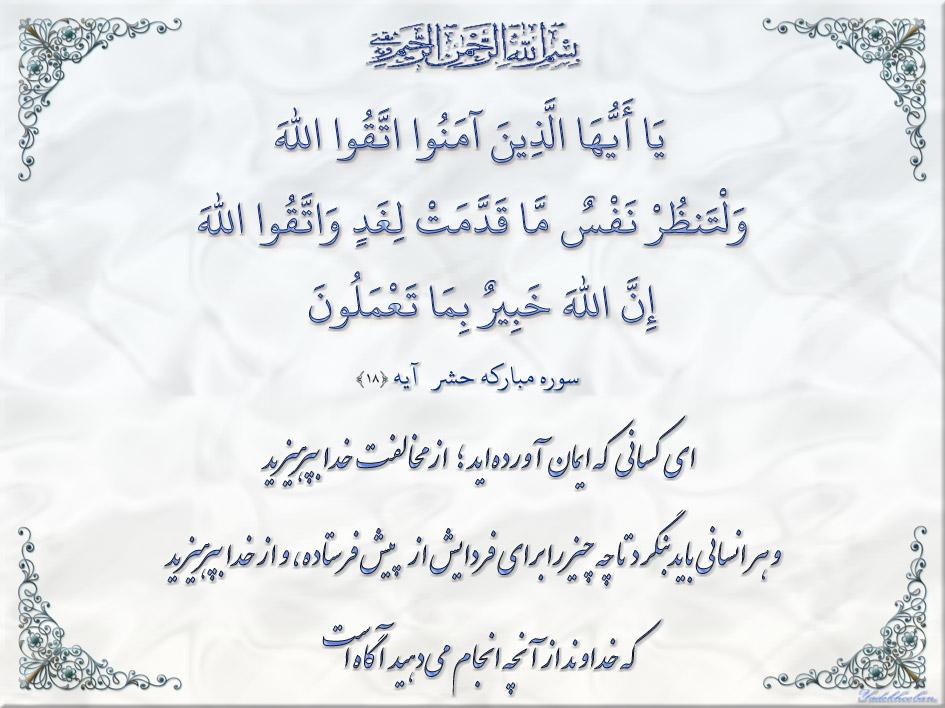 بسم الله الرحمن الرحيم
يَا أَيُّهَا الَّذِينَ آمَنُوا اتَّقُوا اللهَ
وَلْتَنظُرْ نَفْسٌ مَّا قَدَّمَتْ لِغَدٍ وَاتَّقُوا اللهَ
إِنَّ اللهَ خَبِيرٌ بِمَا تَعْمَلُونَ
سوره مبارکه حشر آیه ﴿۱۸﴾
ای کسانی که ایمان آورده‌اید؛ از مخالفت خدا بپرهیزید
و هر انسانی باید بنگرد تا چه چیز را برای فردایش از پیش فرستاده، و از خدا بپرهیزید
که خداوند از آنچه انجام می‌دهید آگاه است